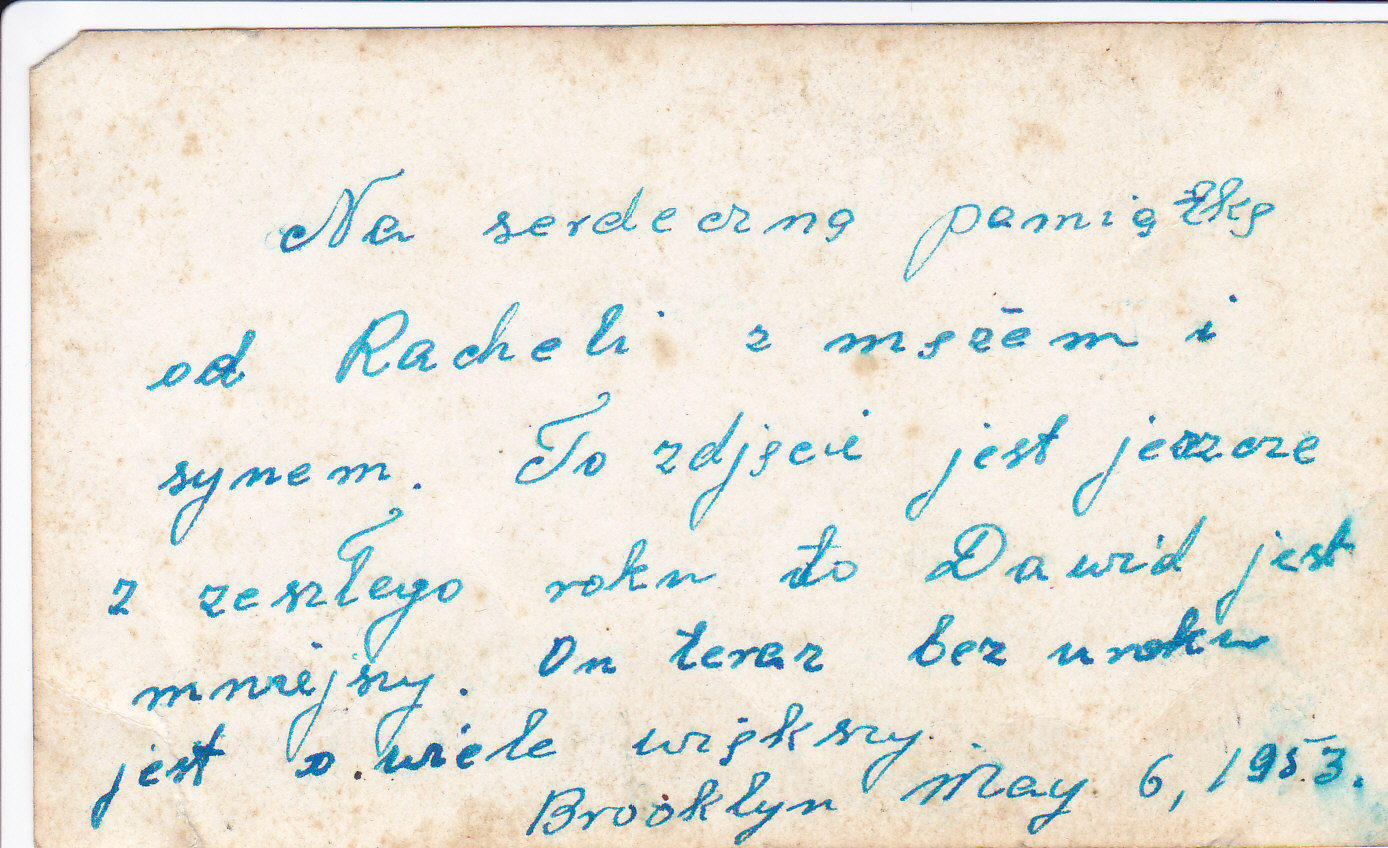 Na serdeczną pamiątkę
od Racheli z mężem i
synem. To zdjęcie jest jeszcze
z zeszłego roku to Dawid jest
mniejszy. On teraz bez uroku
jest o wiele większy.
Brooklyn May 6, 1953.